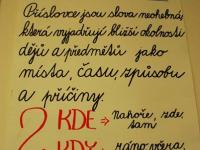 Příslovce jsou slova neohebná,
která vyjadřují bližší okolnosti
dějů a předmětů jako
místa, času, způsobu
a příčiny.
? KDE ⇒ Nahoře, zde,
tam
KDY ráno, včera,